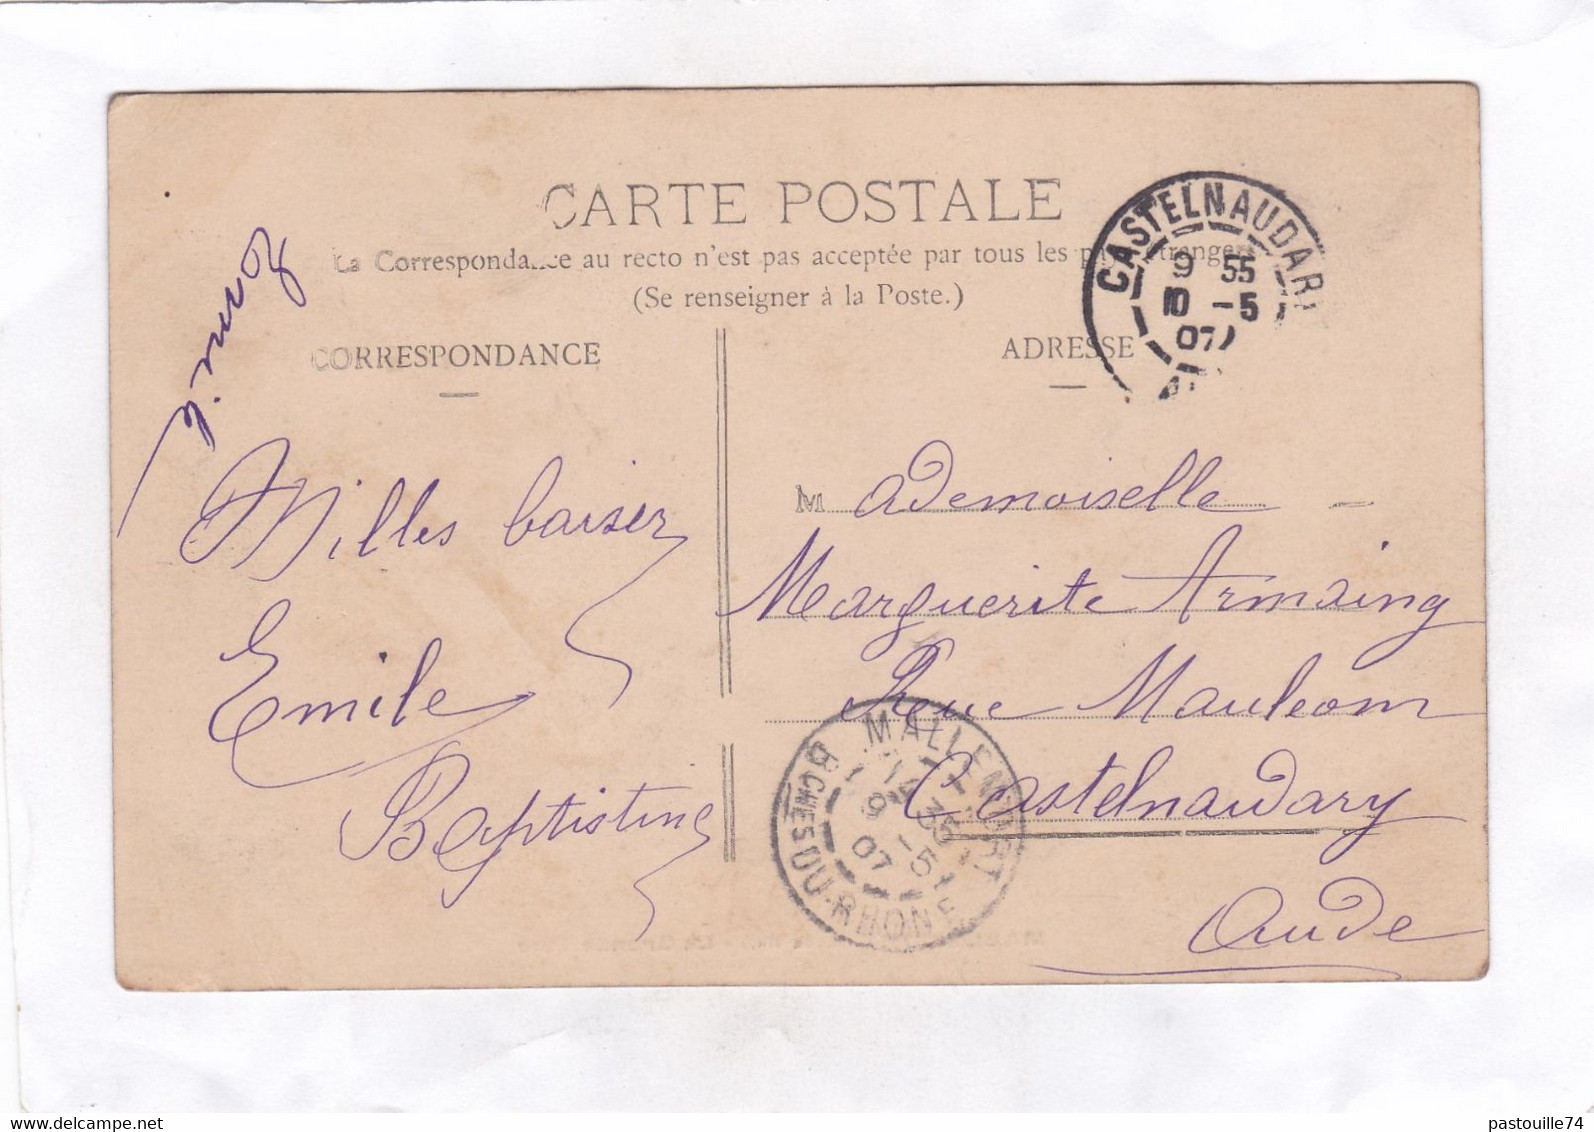 CARTE POSTALE
La Correspondance au recto n'est pas acceptée par tous les pays étrangers
(Se renseigner à la Poste.)
CORRESPONDANCE
ADRESSE
CASTELNAUDARY
9 55
10 -5
07
Milles baiser
Emile
Baptistine
Mademoiselle
Marguerite Armaing
Rue Mauleon
Castelnaudary
Aude
MALLEMORT
12 35
9 -5
07
BCHES DU-RHONE
www.delcampe.net
pastouille74